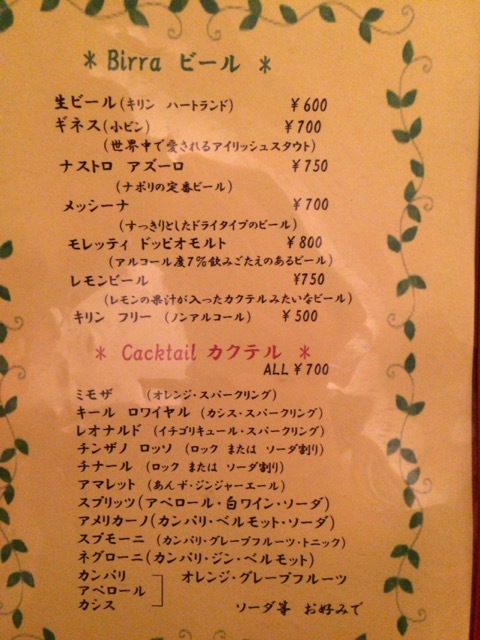 * Birra ビール *
生ビール(キリン ハートランド) ¥600
ギネス(小ビン) ¥700
(世界中で愛されるアイリッシュスタウト)
ナストロ アズーロ ¥750
(ナポリの定番ビール)
メッシーナ ¥700
(すっきりとしたドライタイプのビール)
モレッティ ドッピオモルト ¥800
(アルコール度7%飲みごたえのあるビール)
レモンビール ¥750
(レモンの果汁が入ったカクテルみたいなビール)
キリン フリー (ノンアルコール) ¥500
* Cacktail カクテル *
ALL ¥700
ミモザ (オレンジ・スパークリング)
キール ロワイヤル (カシス・スパークリング)
レオナルド (イチゴリキュール・スパークリング)
チンザノ ロッソ (ロック または ソーダ割り)
チナール (ロック または ソーダ割り)
アマレット (あんず・ジンジャーエール)
スプリッツ(アペロール・白ワイン・ソーダ)
アメリカーノ(カンパリ・ベルモット・ソーダ)
スプモーニ (カンパリ・グレープフルーツ・トニック)
ネグローニ(カンパリ・ジン・ベルモット)
カンパリ オレンジ・グレープフルーツ
アペロール
カシス ソーダ等 お好みで